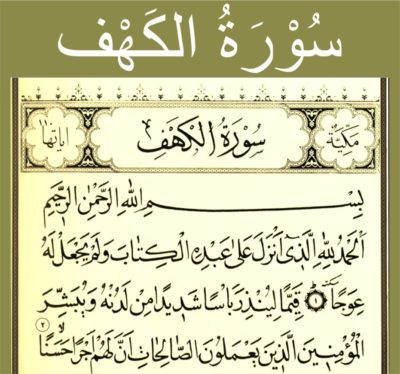 سُوْرَةُ الكَهْف
مكيّة سُورَةُ الكَهْفِ اياتها ١١٠
بِسْمِ اللّٰهِ الرَّحْمٰنِ الرَّحِيْمِ
اَلْحَمْدُ لِلّٰهِ الَّذِىْ اَنْزَلَ عَلٰى عَبْدِهِ الْكِتَابَ وَلَمْ يَجْعَلْ لَهُ
عِوَجًا ۜ ١ قَيِّمًا لِيُنْذِرَ بَاْسًا شَدِيْدًا مِنْ لَدُنْهُ وَيُبَشِّرَ
الْمُؤْمِنِيْنَ الَّذِيْنَ يَعْمَلُوْنَ الصَّالِحَاتِ اَنَّ لَهُمْ اَجْرًا حَسَنًا ٢